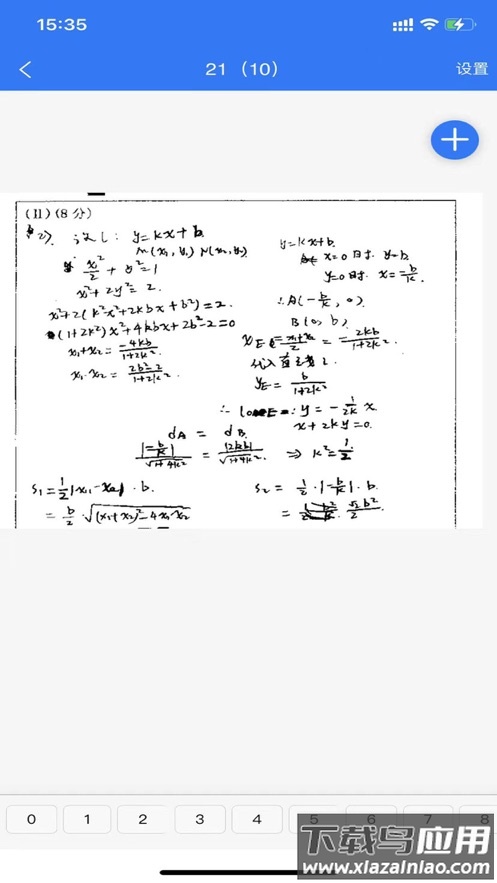 15:35
21（10） 设置
(II)(8分)
(2) 设 l: y=kx+b.
M(x₁, y₁) N(x₂, y₂)
x²/2 + y²=1
x²+2y²=2.
x²+2(k²x²+2kbx+b²)=2.
(1+2k²)x²+4kbx+2b²-2=0
x₁+x₂ = -4kb/1+2k²
x₁·x₂ = 2b²-2/1+2k².
y=kx+b.
x=0时. y=b
y=0时. x=-b/k.
∴A(-b/k, 0).
B(0, b)
x_E = x₁+x₂/2 = -2kb/1+2k².
代入直线l.
y_E = b/1+2k²
y = -1/2k x.
x+2ky=0.
d_A = d_B.
|-b/k|/√1+4k² = |2kb|/√1+4k². ⇒ k²=1/2
S₁=1/2|x₁-x₂|·b.
= b/2·√(x₁+x₂)²-4x₁x₂
S₂ = 1/2·|-b/k|·b.
= √2b²/2
0 1 2 3 4 5 6 7 8
下载鸟应用
www.xiazainiao.com